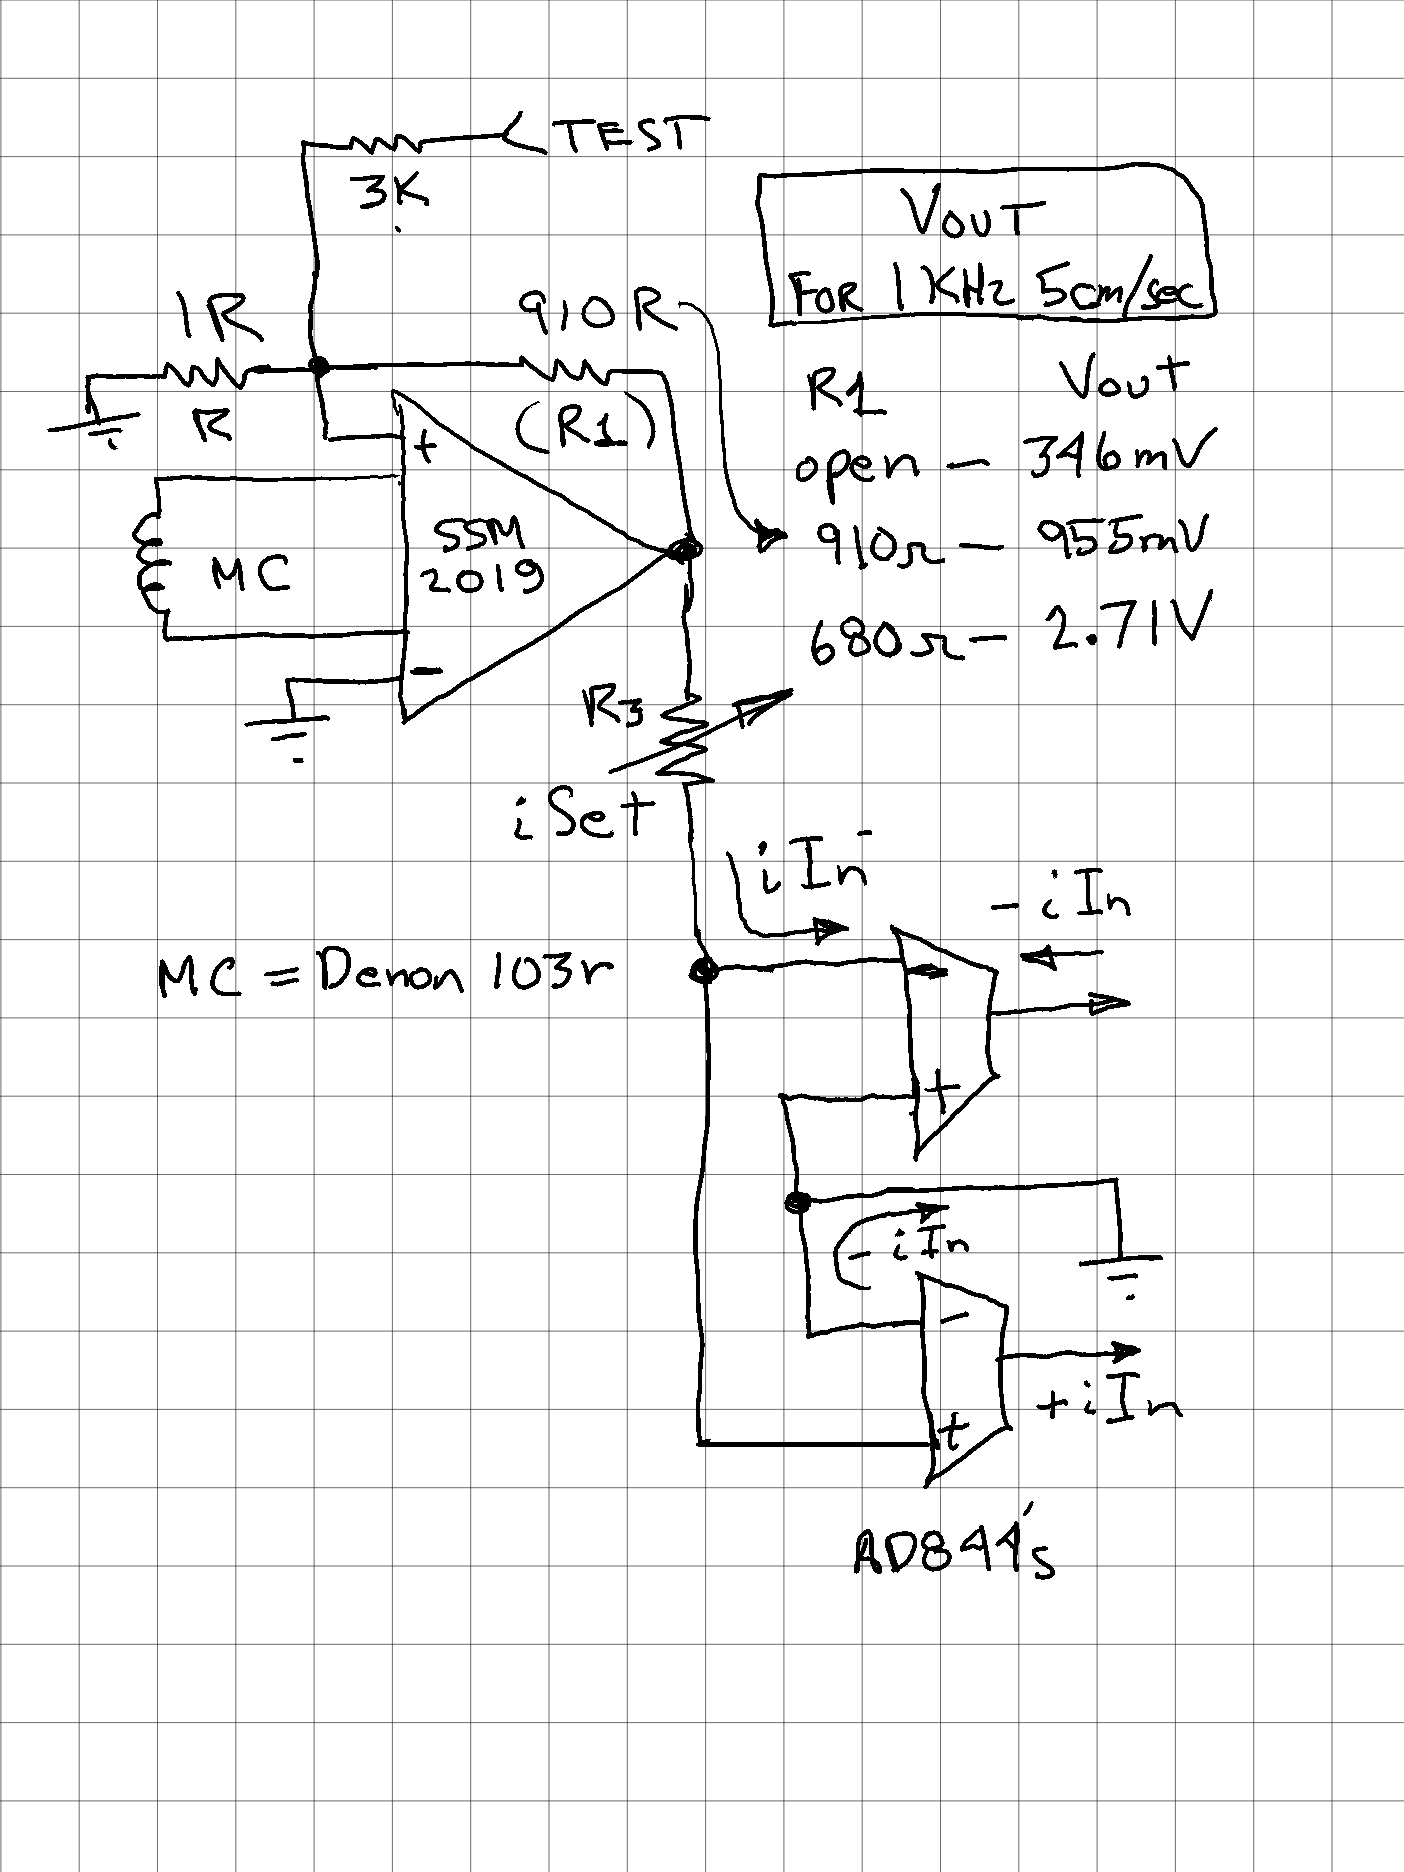 TEST
3K
VOUT
FOR 1 KHz 5cm/sec
1R
910R
R
(R1)
R1 Vout
open – 346mV
910Ω – 955mV
680Ω – 2.71V
+
SSM
2019
MC
−
R3
iSet
iIn
-iIn
MC = Denon 103r
−
+
-iIn
−
+iIn
+
AD844's